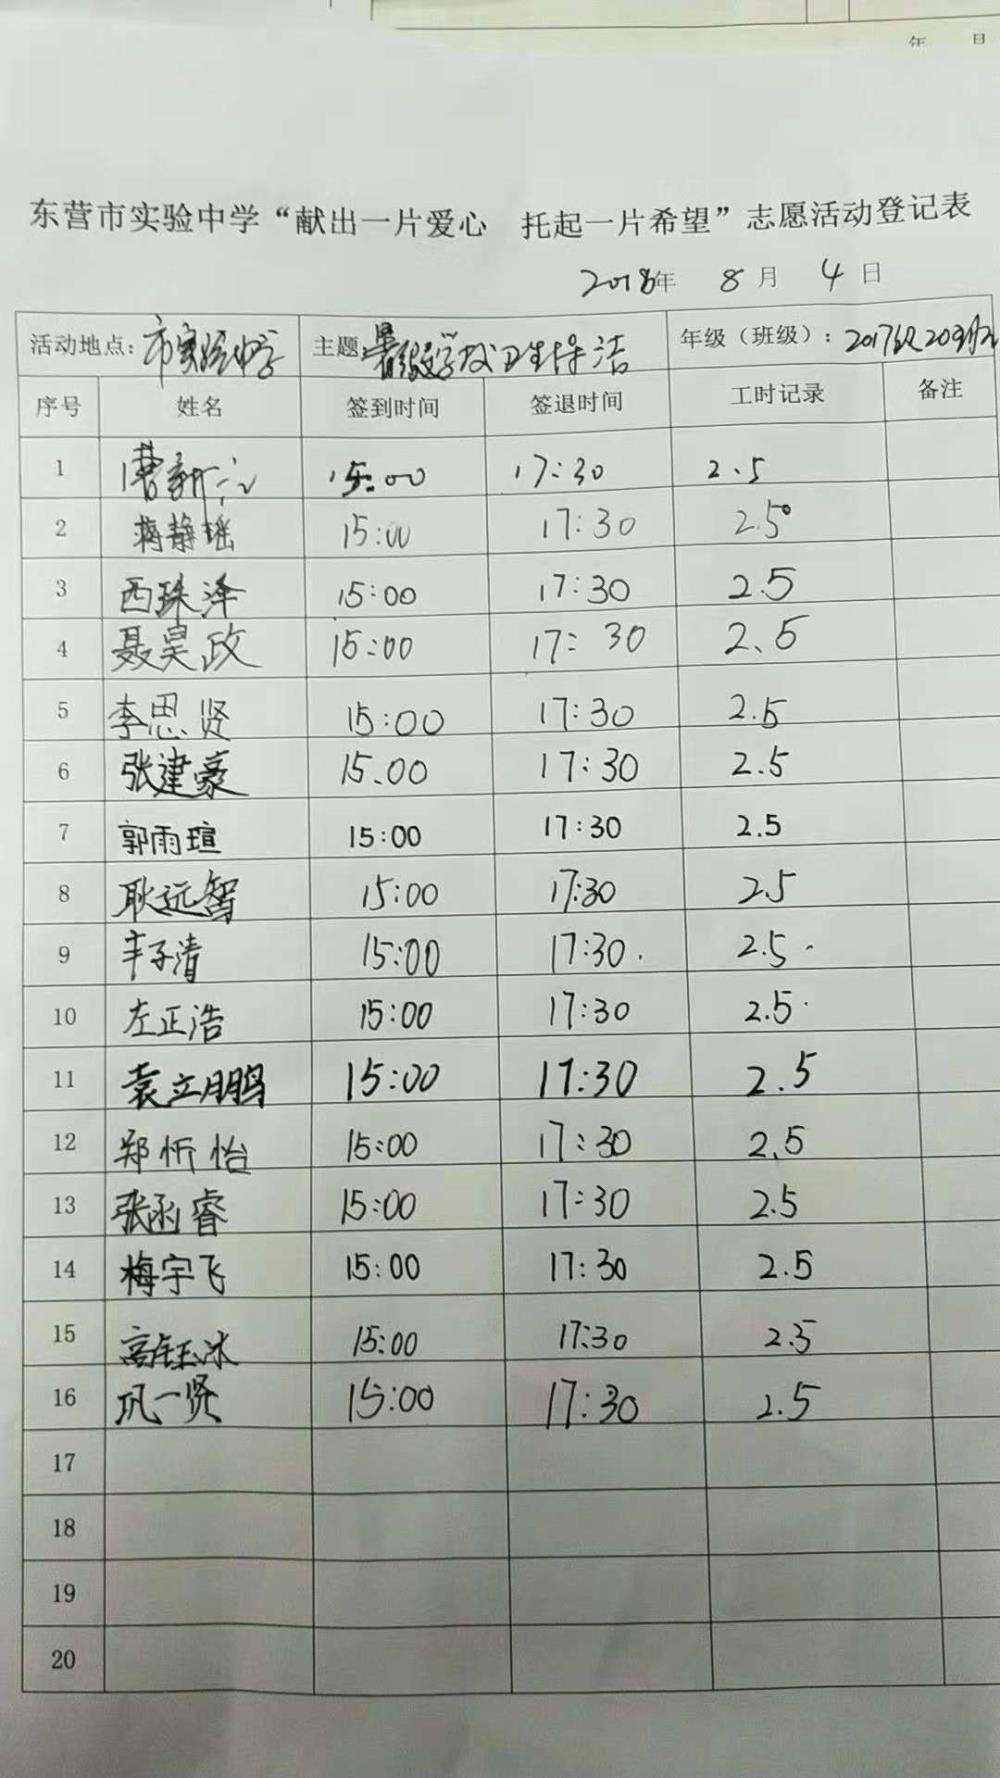 年 月
东营市实验中学“献出一片爱心 托起一片希望”志愿活动登记表
2018年 8月 4日
活动地点：市实验中学 主题：暑假学校卫生保洁 年级（班级）：2017级20班
序号 姓名 签到时间 签退时间 工时记录 备注
1 曹新 15:00 17:30 2.5
2 蒋静瑶 15:00 17:30 2.5
3 西珠泽 15:00 17:30 2.5
4 聂昊政 15:00 17:30 2.5
5 李思贤 15:00 17:30 2.5
6 张建豪 15.00 17:30 2.5
7 郭雨瑄 15:00 17:30 2.5
8 耿远智 15:00 17:30 2.5
9 丰子清 15:00 17:30. 2.5
10 左正浩 15:00 17:30 2.5
11 袁立鹏 15:00 17:30 2.5
12 郑忻怡 15:00 17:30 2.5
13 张函睿 15:00 17:30 2.5
14 梅宇飞 15:00 17:30 2.5
15 高钰冰 15:00 17:30 2.5
16 巩一贤 15:00 17:30 2.5
17
18
19
20